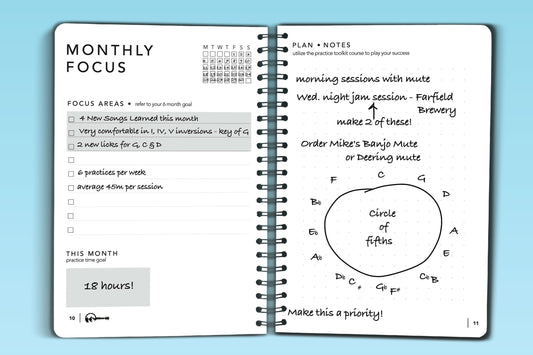 MONTHLY
FOCUS
M T W T F S S
FOCUS AREAS • refer to your 6 month goal
4 New Songs Learned this month
Very comfortable in I, IV, V inversions - key of G
2 new licks for G, C & D
6 practices per week
average 45m per session
THIS MONTH
practice time goal
18 hours!
10
PLAN • NOTES
utilize the practice toolkit course to play your success
morning sessions with mute
Wed. night jam session - Farfield
Brewery
make 2 of these!
Order Mike's Banjo Mute
or Deering mute
F C G
B♭ D
E♭ A
A♭ E
D♭ C# G♭ F# C♭ B
Circle
of
fifths
Make this a priority!
11